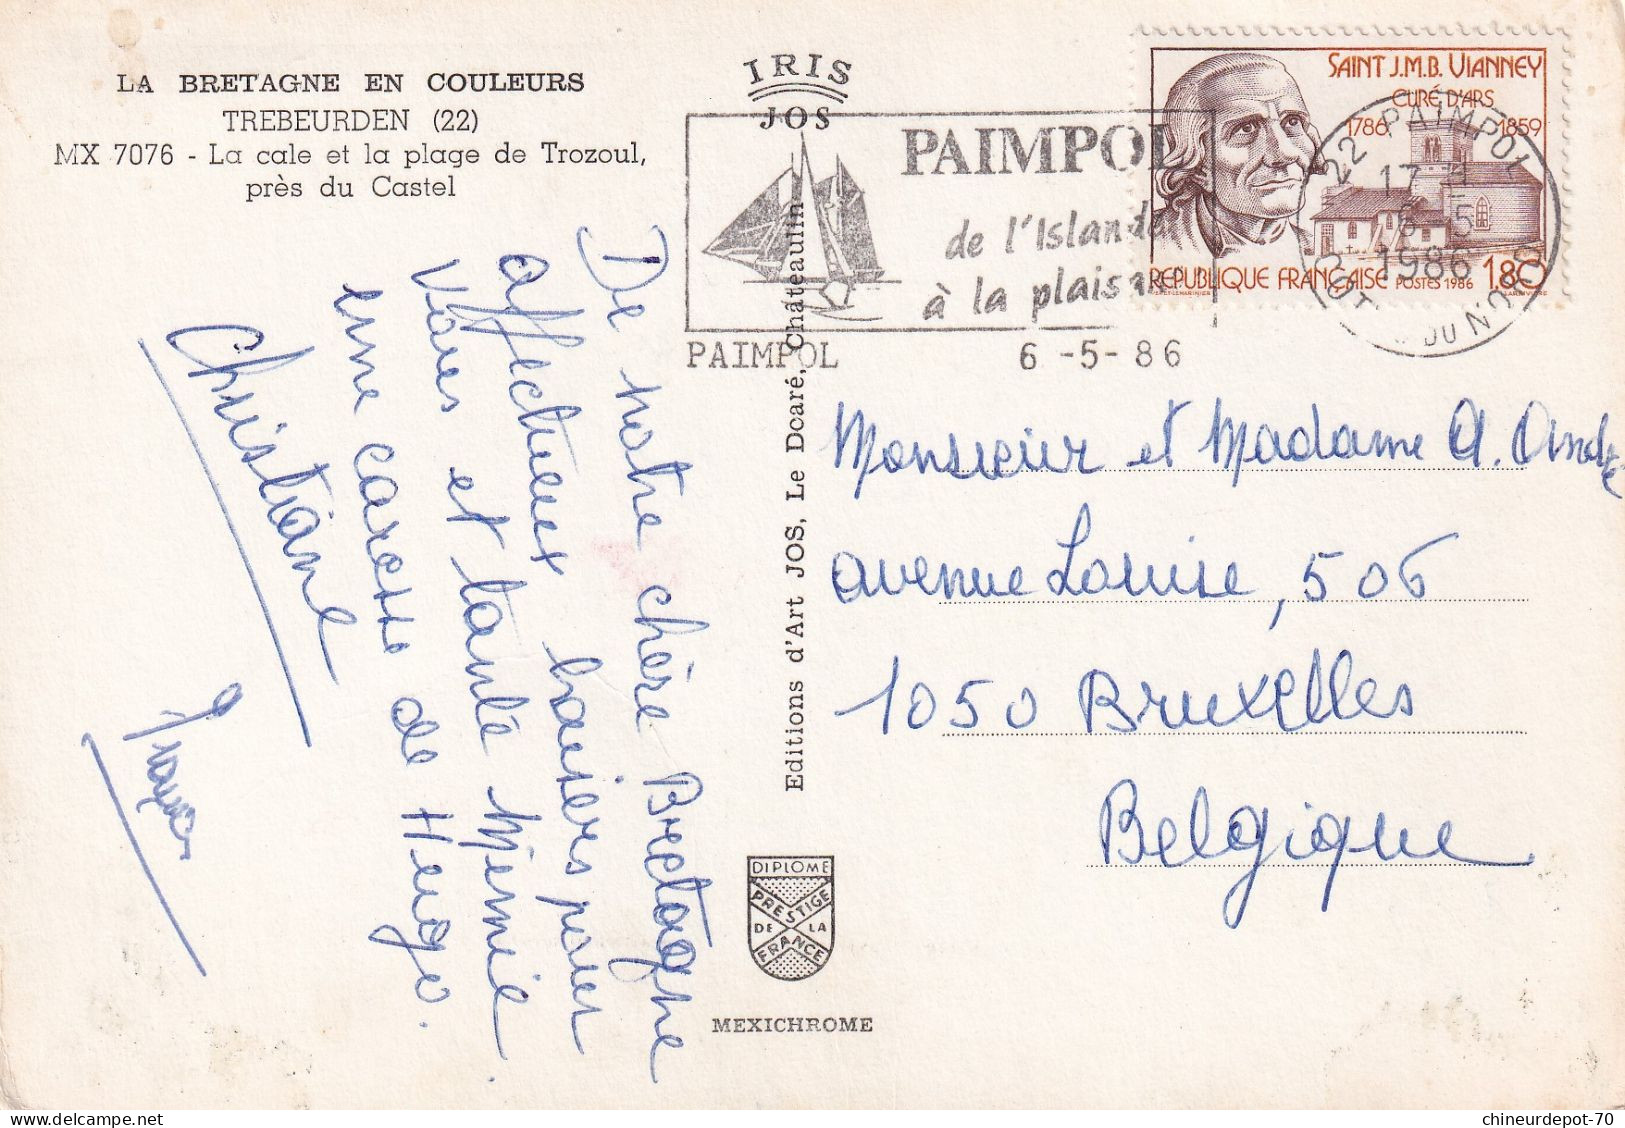 LA BRETAGNE EN COULEURS
TREBEURDEN (22)
MX 7076 - La cale et la plage de Trozoul,
près du Castel
IRIS
JOS
PAIMPOL
de l'Islande
à la plaisan
PAIMPOL 6 -5- 86
SAINT J.M.B. VIANNEY
CURÉ D'ARS
1786 1859
REPUBLIQUE FRANÇAISE POSTES 1986 1.80
22 PAIMPOL
17 H
6 - 5
1986
COT DU NORD
De notre chère Bretagne
affectueux baisers pour
vous et tante Mimie
une caresse de Hugo.
Christiane
Editions d'Art JOS, Le Doaré, Châteaulin
Monsieur et Madame A. André
avenue Louise, 506
1050 Bruxelles
Belgique
DIPLOME
PRESTIGE
DE LA
FRANCE
MEXICHROME
chineurdepot-70